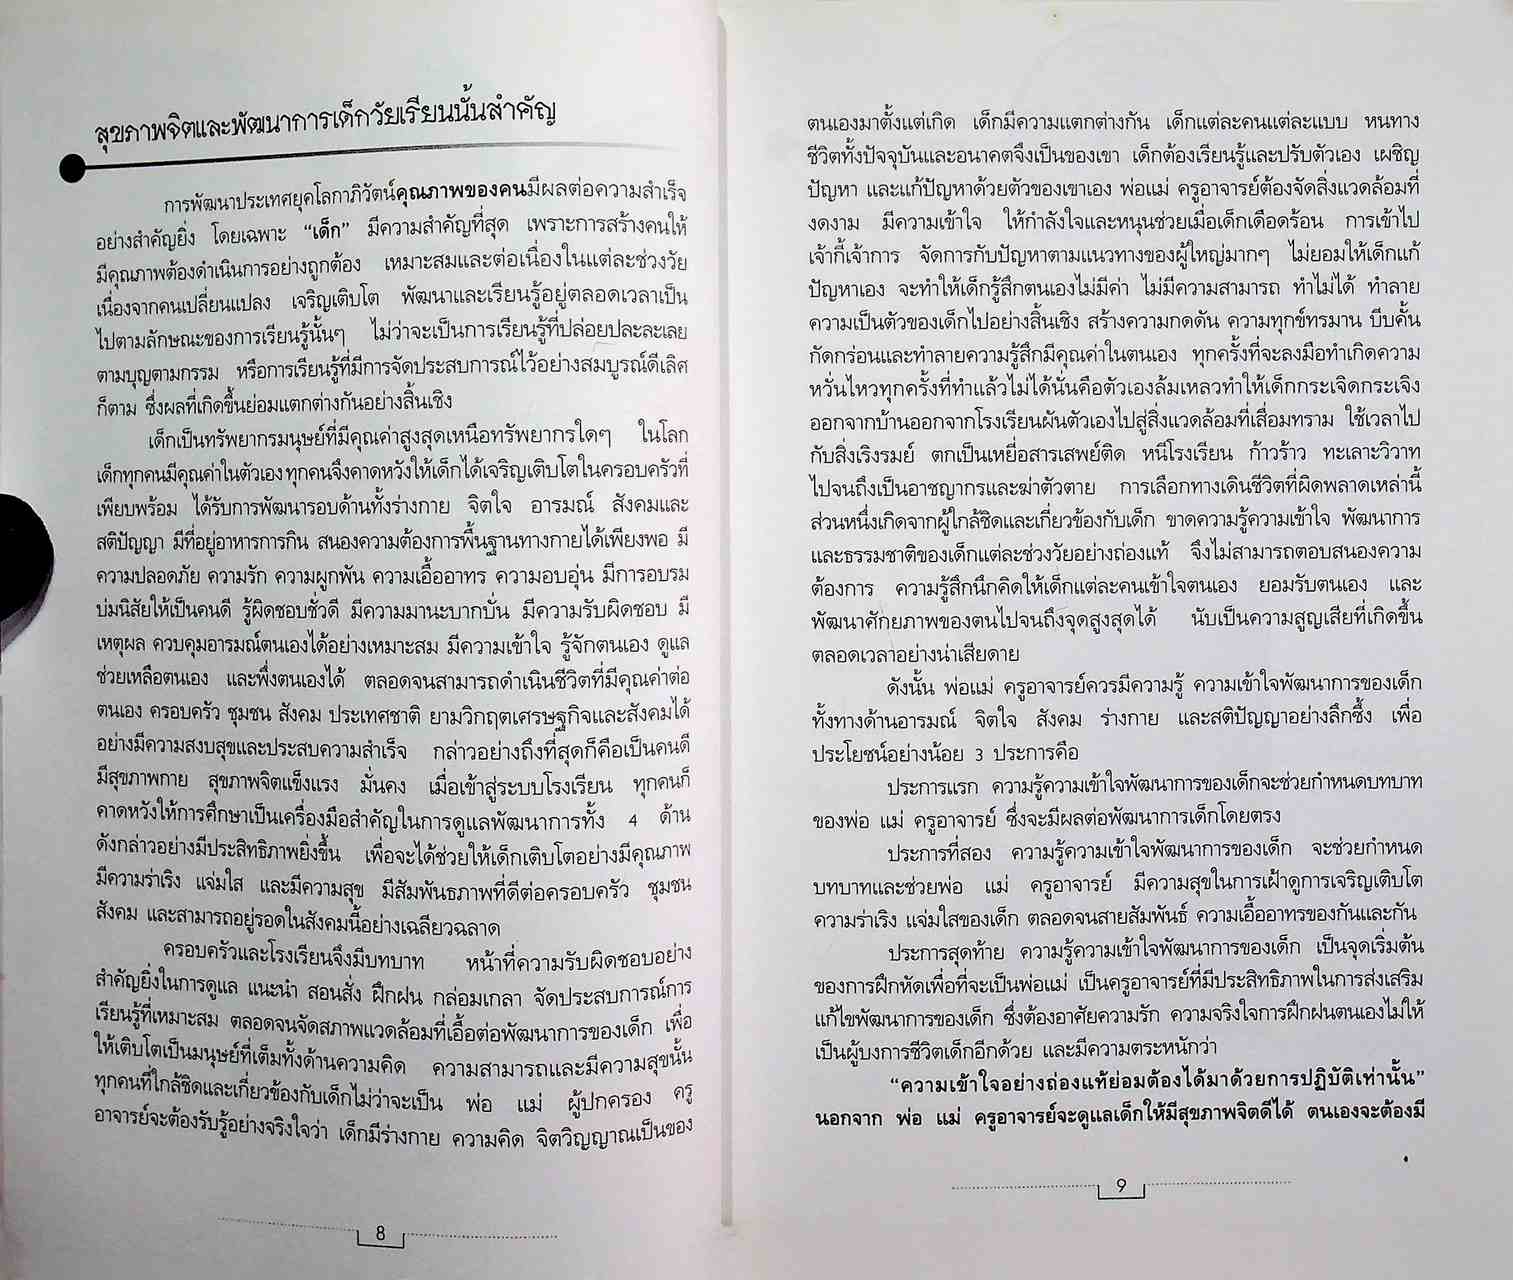 สุขภาพจิตและพัฒนาการเด็กวัยเรียนนั้นสำคัญ
การพัฒนาประเทศยุคโลกาภิวัตน์คุณภาพของคนมีผลต่อความสำเร็จ
อย่างสำคัญยิ่ง โดยเฉพาะ “เด็ก” มีความสำคัญที่สุด เพราะการสร้างคนให้
มีคุณภาพต้องดำเนินการอย่างถูกต้อง เหมาะสมและต่อเนื่องในแต่ละช่วงวัย
เนื่องจากคนเปลี่ยนแปลง เจริญเติบโต พัฒนาและเรียนรู้อยู่ตลอดเวลาเป็น
ไปตามลักษณะของการเรียนรู้นั้นๆ ไม่ว่าจะเป็นการเรียนรู้ที่ปล่อยปละละเลย
ตามบุญตามกรรม หรือการเรียนรู้ที่มีการจัดประสบการณ์ไว้อย่างสมบูรณ์ดีเลิศ
ก็ตาม ซึ่งผลที่เกิดขึ้นย่อมแตกต่างกันอย่างสิ้นเชิง
เด็กเป็นทรัพยากรมนุษย์ที่มีคุณค่าสูงสุดเหนือทรัพยากรใดๆ ในโลก
เด็กทุกคนมีคุณค่าในตัวเอง ทุกคนจึงคาดหวังให้เด็กได้เจริญเติบโตในครอบครัวที่
เพียบพร้อม ได้รับการพัฒนารอบด้านทั้งร่างกาย จิตใจ อารมณ์ สังคมและ
สติปัญญา มีที่อยู่อาหารการกิน สนองความต้องการพื้นฐานทางกายได้เพียงพอ มี
ความปลอดภัย ความรัก ความผูกพัน ความเอื้ออาทร ความอบอุ่น มีการอบรม
บ่มนิสัยให้เป็นคนดี รู้ผิดชอบชั่วดี มีความมานะบากบั่น มีความรับผิดชอบ มี
เหตุผล ควบคุมอารมณ์ตนเองได้อย่างเหมาะสม มีความเข้าใจ รู้จักตนเอง ดูแล
ช่วยเหลือตนเอง และพึ่งตนเองได้ ตลอดจนสามารถดำเนินชีวิตที่มีคุณค่าต่อ
ตนเอง ครอบครัว ชุมชน สังคม ประเทศชาติ ยามวิกฤตเศรษฐกิจและสังคมได้
อย่างมีความสงบสุขและประสบความสำเร็จ กล่าวอย่างถึงที่สุดก็คือเป็นคนดี
มีสุขภาพกาย สุขภาพจิตแข็งแรง มั่นคง เมื่อเข้าสู่ระบบโรงเรียน ทุกคนก็
คาดหวังให้การศึกษาเป็นเครื่องมือสำคัญในการดูแลพัฒนาการทั้ง 4 ด้าน
ดังกล่าวอย่างมีประสิทธิภาพยิ่งขึ้น เพื่อจะได้ช่วยให้เด็กเติบโตอย่างมีคุณภาพ
มีความร่าเริง แจ่มใส และมีความสุข มีสัมพันธภาพที่ดีต่อครอบครัว ชุมชน
สังคม และสามารถอยู่รอดในสังคมนี้อย่างเฉลียวฉลาด
ครอบครัวและโรงเรียนจึงมีบทบาท หน้าที่ความรับผิดชอบอย่าง
สำคัญยิ่งในการดูแล แนะนำ สอนสั่ง ฝึกฝน กล่อมเกลา จัดประสบการณ์การ
เรียนรู้ที่เหมาะสม ตลอดจนจัดสภาพแวดล้อมที่เอื้อต่อพัฒนาการของเด็ก เพื่อ
ให้เติบโตเป็นมนุษย์ที่เต็มทั้งด้านความคิด ความสามารถและมีความสุขนั้น
ทุกคนที่ใกล้ชิดและเกี่ยวข้องกับเด็กไม่ว่าจะเป็น พ่อ แม่ ผู้ปกครอง ครู
อาจารย์จะต้องรับรู้อย่างจริงใจว่า เด็กมีร่างกาย ความคิด จิตวิญญาณเป็นของ
8
ตนเองมาตั้งแต่เกิด เด็กมีความแตกต่างกัน เด็กแต่ละคนแต่ละแบบ หนทาง
ชีวิตทั้งปัจจุบันและอนาคตจึงเป็นของเขา เด็กต้องเรียนรู้และปรับตัวเอง เผชิญ
ปัญหา และแก้ปัญหาด้วยตัวของเขาเอง พ่อแม่ ครูอาจารย์ต้องจัดสิ่งแวดล้อมที่
งดงาม มีความเข้าใจ ให้กำลังใจและหนุนช่วยเมื่อเด็กเดือดร้อน การเข้าไป
เจ้ากี้เจ้าการ จัดการกับปัญหาตามแนวทางของผู้ใหญ่มากๆ ไม่ยอมให้เด็กแก้
ปัญหาเอง จะทำให้เด็กรู้สึกตนเองไม่มีค่า ไม่มีความสามารถ ทำไม่ได้ ทำลาย
ความเป็นตัวของเด็กไปอย่างสิ้นเชิง สร้างความกดดัน ความทุกข์ทรมาน บีบคั้น
กัดกร่อนและทำลายความรู้สึกมีคุณค่าในตนเอง ทุกครั้งที่จะลงมือทำเกิดความ
หวั่นไหวทุกครั้งที่ทำแล้วไม่ได้นั่นคือตัวเองล้มเหลวทำให้เด็กกระเจิดกระเจิง
ออกจากบ้านออกจากโรงเรียนผันตัวเองไปสู่สิ่งแวดล้อมที่เสื่อมทราม ใช้เวลาไป
กับสิ่งเริงรมย์ ตกเป็นเหยื่อสารเสพย์ติด หนีโรงเรียน ก้าวร้าว ทะเลาะวิวาท
ไปจนถึงเป็นอาชญากรและฆ่าตัวตาย การเลือกทางเดินชีวิตที่ผิดพลาดเหล่านี้
ส่วนหนึ่งเกิดจากผู้ใกล้ชิดและเกี่ยวข้องกับเด็ก ขาดความรู้ความเข้าใจ พัฒนาการ
และธรรมชาติของเด็กแต่ละช่วงวัยอย่างถ่องแท้ จึงไม่สามารถตอบสนองความ
ต้องการ ความรู้สึกนึกคิดให้เด็กแต่ละคนเข้าใจตนเอง ยอมรับตนเอง และ
พัฒนาศักยภาพของตนไปจนถึงจุดสูงสุดได้ นับเป็นความสูญเสียที่เกิดขึ้น
ตลอดเวลาอย่างน่าเสียดาย
ดังนั้น พ่อแม่ ครูอาจารย์ควรมีความรู้ ความเข้าใจพัฒนาการของเด็ก
ทั้งทางด้านอารมณ์ จิตใจ สังคม ร่างกาย และสติปัญญาอย่างลึกซึ้ง เพื่อ
ประโยชน์อย่างน้อย 3 ประการคือ
ประการแรก ความรู้ความเข้าใจพัฒนาการของเด็กจะช่วยกำหนดบทบาท
ของพ่อ แม่ ครูอาจารย์ ซึ่งจะมีผลต่อพัฒนาการเด็กโดยตรง
ประการที่สอง ความรู้ความเข้าใจพัฒนาการของเด็ก จะช่วยกำหนด
บทบาทและช่วยพ่อ แม่ ครูอาจารย์ มีความสุขในการเฝ้าดูการเจริญเติบโต
ความร่าเริง แจ่มใสของเด็ก ตลอดจนสายสัมพันธ์ ความเอื้ออาทรของกันและกัน
ประการสุดท้าย ความรู้ความเข้าใจพัฒนาการของเด็ก เป็นจุดเริ่มต้น
ของการฝึกหัดเพื่อที่จะเป็นพ่อแม่ เป็นครูอาจารย์ที่มีประสิทธิภาพในการส่งเสริม
แก้ไขพัฒนาการของเด็ก ซึ่งต้องอาศัยความรัก ความจริงใจการฝึกฝนตนเองไม่ให้
เป็นผู้บงการชีวิตเด็กอีกด้วย และมีความตระหนักว่า
“ความเข้าใจอย่างถ่องแท้ย่อมต้องได้มาด้วยการปฏิบัติเท่านั้น”
นอกจาก พ่อ แม่ ครูอาจารย์จะดูแลเด็กให้มีสุขภาพจิตดีได้ ตนเองจะต้องมี
9